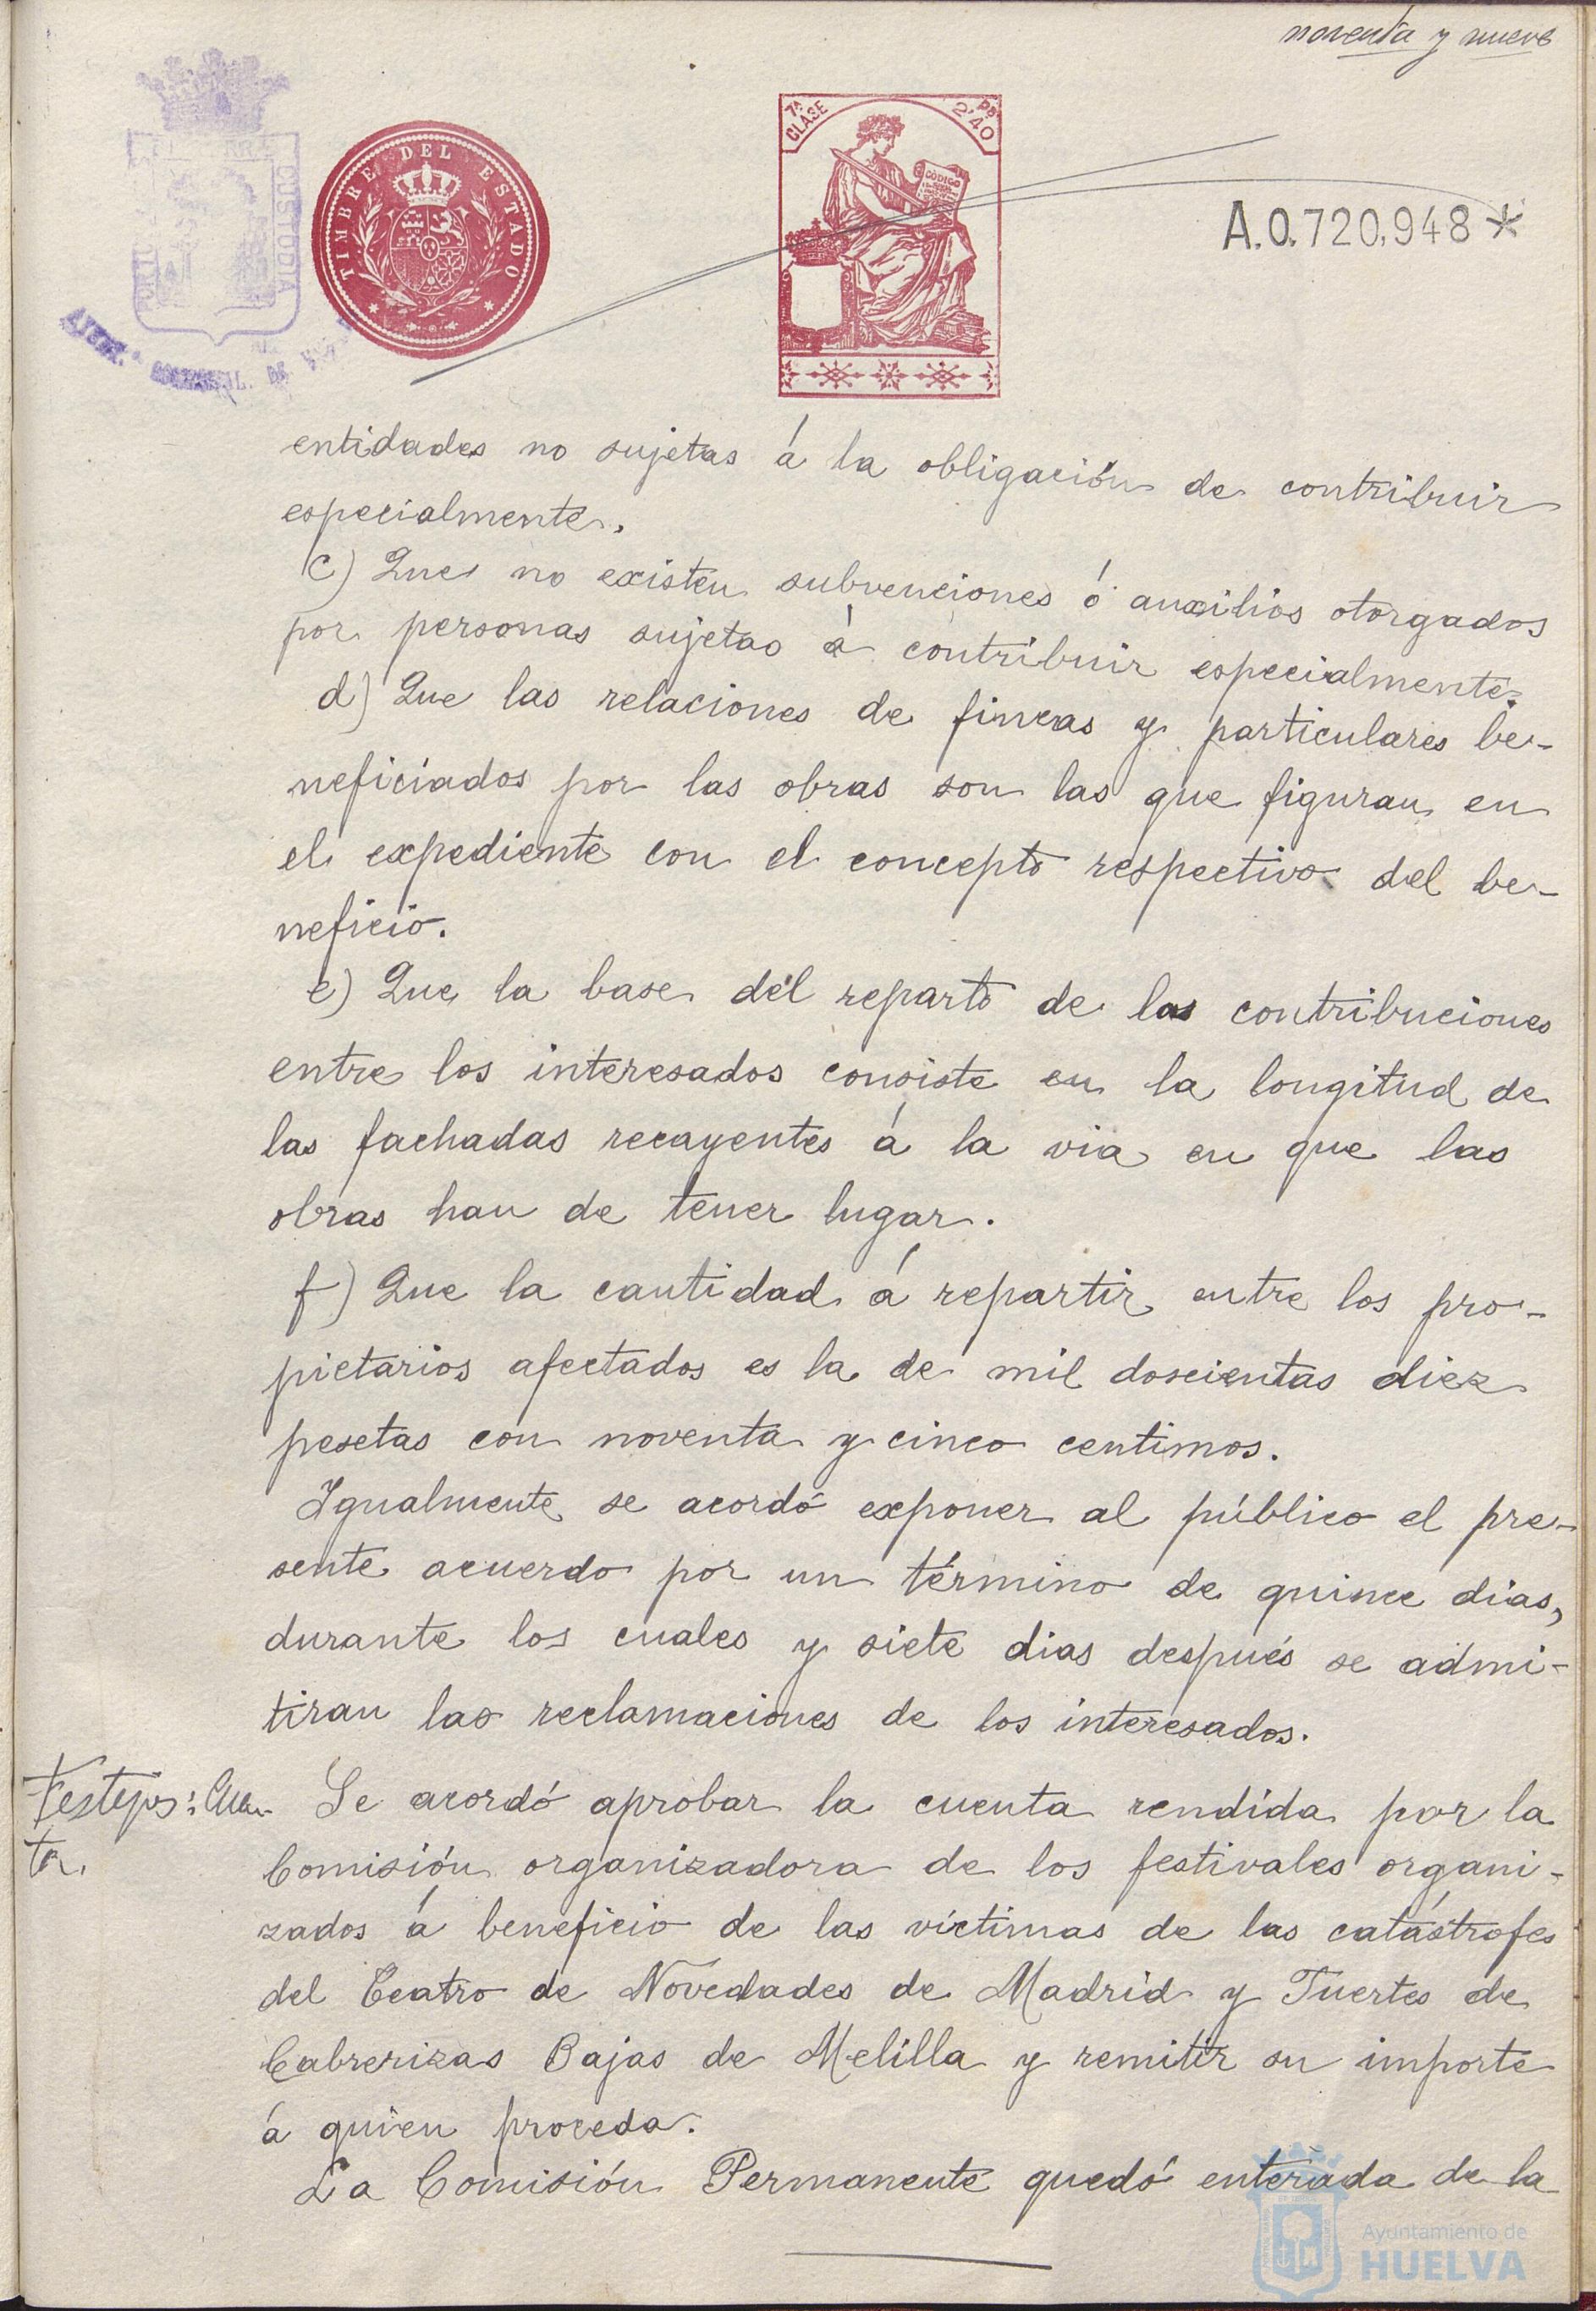 noventa y nueve
TIMBRE DEL ESTADO
7ª CLASE
2'40
CÓDIGO
CUSTODIA
A.0.720,948*
entidades no sujetas á la obligación de contribuir
especialmente.
c) Que no existen subvenciones ó auxilios otorgados
por personas sujetas á contribuir especialmente.
d) Que las relaciones de fincas y particulares be-
neficiados por las obras son las que figuran en
el expediente con el concepto respectivo del be-
neficio.
e) Que la base del reparto de las contribuciones
entre los interesados consiste en la longitud de
las fachadas recayentes á la via en que las
obras han de tener lugar.
f) Que la cantidad á repartir entre los pro-
pietarios afectados es la de mil doscientas diez
pesetas con noventa y cinco centimos.
Igualmente se acordó exponer al público el pre-
sente acuerdo por un término de quince dias,
durante los cuales y siete dias después se admi-
tiran las reclamaciones de los interesados.
Festejos: Cuen-
ta.
Se acordó aprobar la cuenta rendida por la
Comisión organizadora de los festivales organi-
zados á beneficio de las víctimas de las catástrofes
del Teatro de Novedades de Madrid y Fuertes de
Cabrerizas Bajas de Melilla y remitir su importe
á quien proceda.
La Comisión Permanente quedó enterada de la
Ayuntamiento de
HUELVA